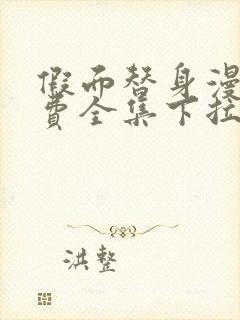 假而替身漫
费全集下拉
洪整